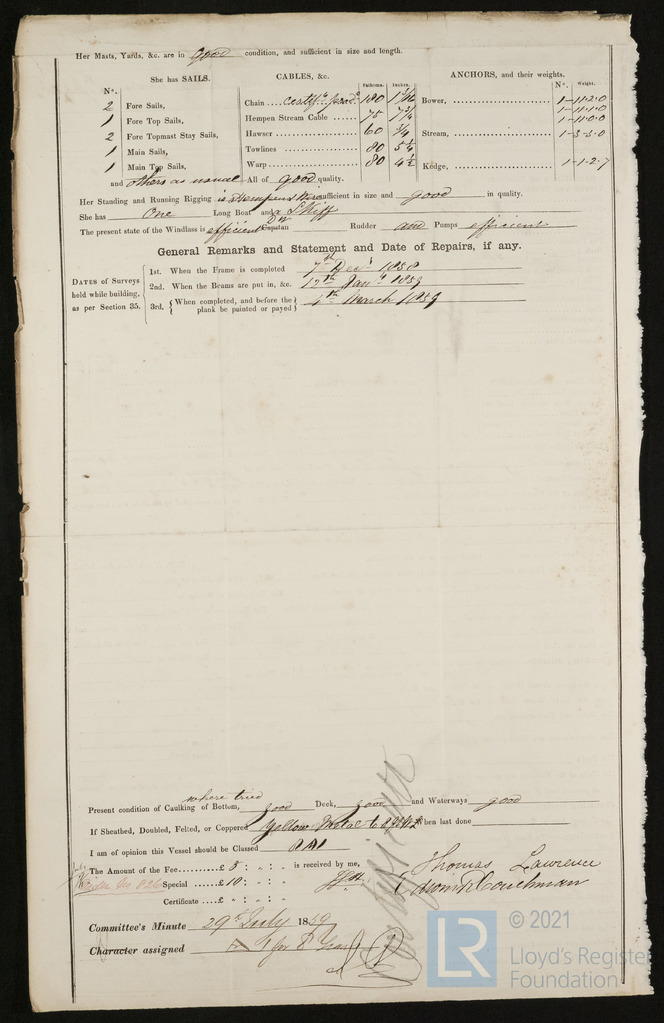 Her Masts, Yards, &c. are in good condition, and sufficient in size and length.
She has SAILS.
CABLES, &c.
ANCHORS, and their weights.
Nº.
Fathoms. Inches.
Nº. Weight.
2 Fore Sails,
1 Fore Top Sails,
2 Fore Topmast Stay Sails,
1 Main Sails,
1 Main Top Sails,
and others as usual
Chain .... 180
Hempen Stream Cable ...... 75
Hawser .... 60 3/4
Towlines .... 80
Warp .... 80 4½
All of good quality.
Bower, .... 1-11.2.0
1-11.1.0
1-11.0.0
Stream, .... 1-3-3.0
Kedge, .... 1-1-2-7
Her Standing and Running Rigging is hempen sufficient in size and good in quality.
She has One Long Boat and a Skiff
The present state of the Windlass is efficient Capstan Do Rudder and Pumps efficient
General Remarks and Statement and Date of Repairs, if any.
DATES of Surveys held while building, as per Section 35.
1st. When the Frame is completed 7th Decr 1858
2nd. When the Beams are put in, &c. 12th Jany 1859
3rd. { When completed, and before the plank be painted or payed } 4th March 1859
where tried
Present condition of Caulking of Bottom, good Deck, good and Waterways good
If Sheathed, Doubled, Felted, or Coppered Yellow Metal to When last done
I am of opinion this Vessel should be Classed 8 A1
The Amount of the Fee ......£ 5 : „ : „ is received by me,
Special ......£ 10 : „ : „
Certificate ... £ „ : „ : „
Thomas Lawrence
Couchman
Committee's Minute 29th July 1859
Character assigned A 1 for 8 Years
LR
© 2021
Lloyd's Register
Foundation